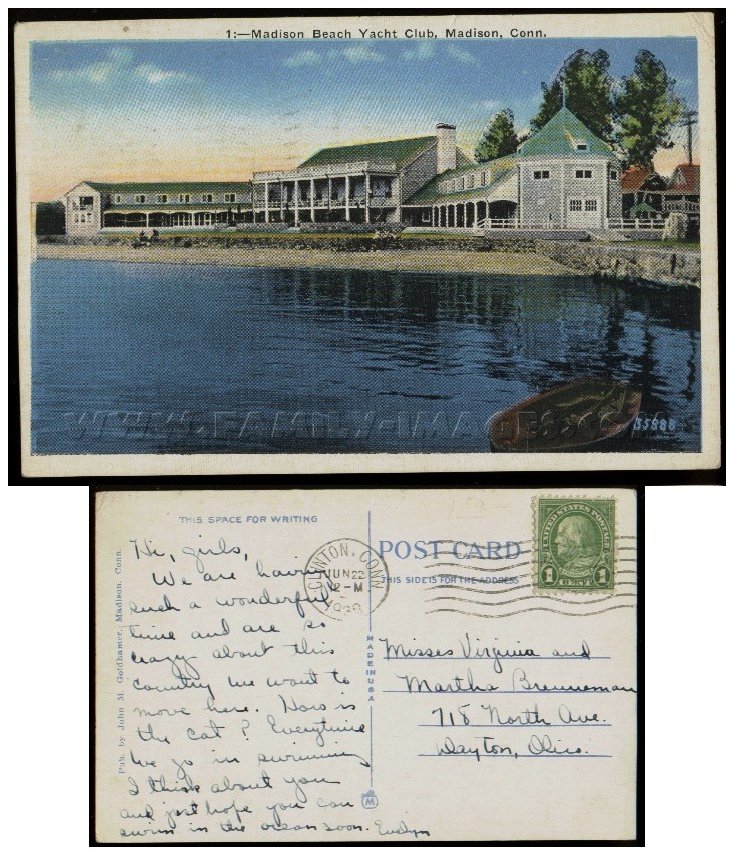 1:—Madison Beach Yacht Club, Madison, Conn.
WWW.FAMILY-IMAGES.COM
35888
THIS SPACE FOR WRITING
Hi, girls,
We are having
such a wonderful
time and are so
crazy about this
country we want to
move here. How is
the cat? Everytime
we go in swimming
I think about you
and just hope you can
swim in the ocean soon. Evelyn
Pub. by John M. Goldhamer, Madison, Conn.
MADE IN USA
CLINTON, CONN
JUN 22
12-M
POST CARD
THIS SIDE IS FOR THE ADDRESS
UNITED STATES POSTAGE
1 CENT 1
Misses Virginia and
Martha Brenneman
718 North Ave.
Dayton, Ohio.